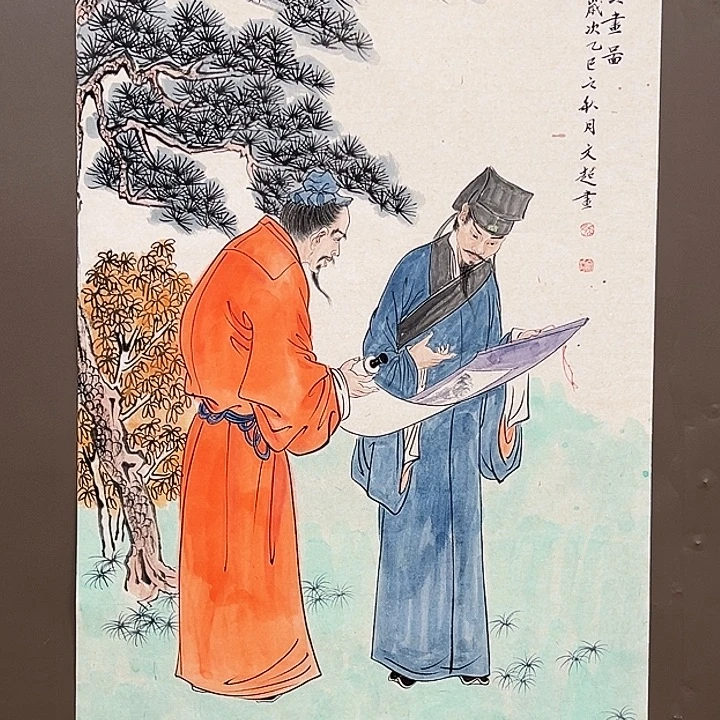 畫啚
歲次乙巳之秋月文起畫